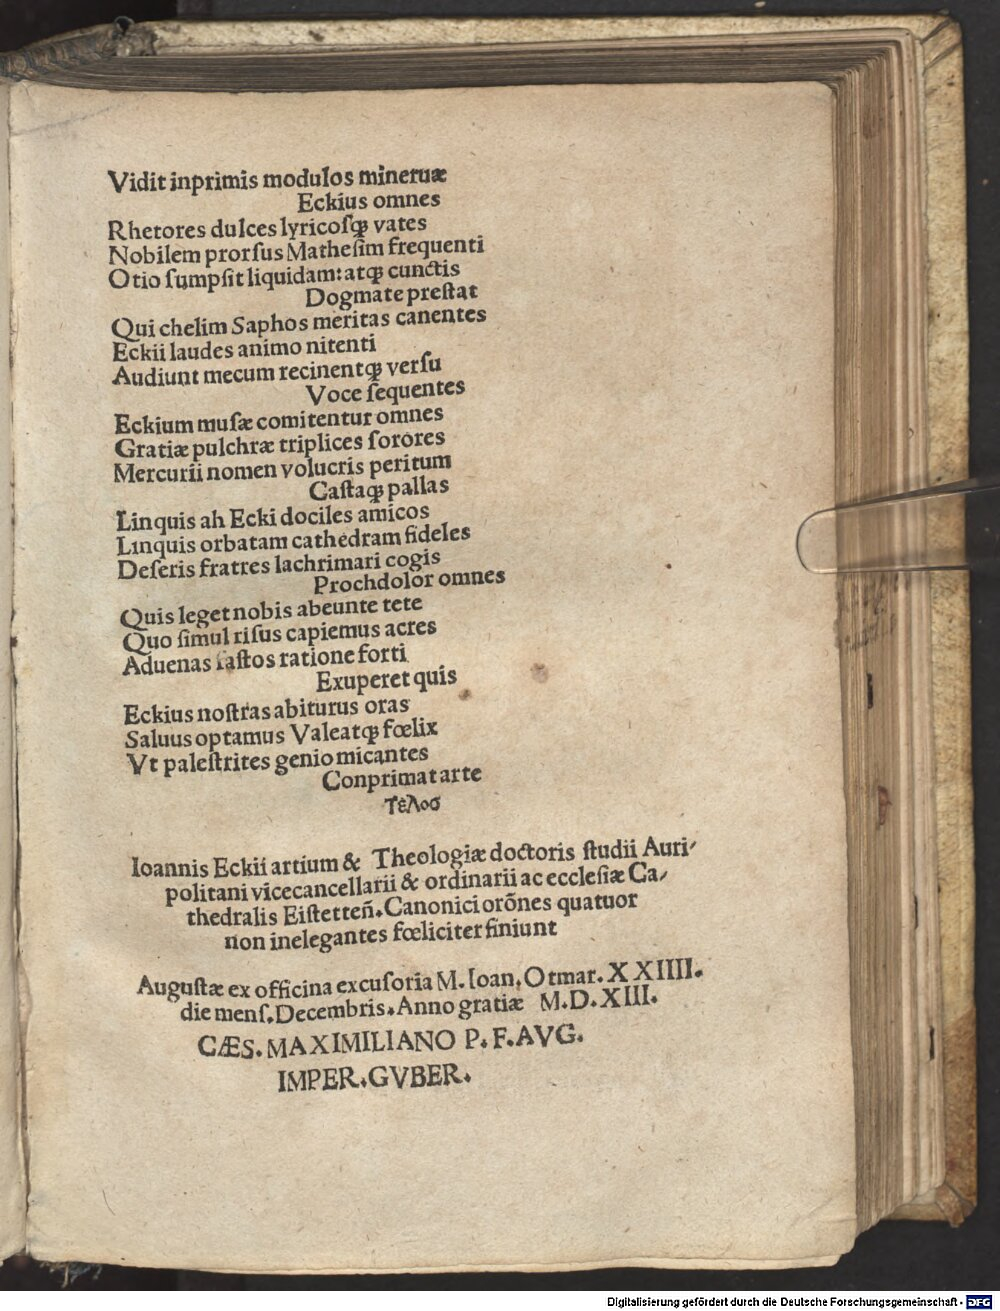 Vidit inprimis modulos mineruæ
Eckius omnes
Rhetores dulces lyricoſqꝫ vates
Nobilem prorſus Matheſim frequenti
Otio ſumpſit liquidam: atqꝫ cunctis
Dogmate preſtat
Qui chelim Saphos meritas canentes
Eckii laudes animo nitenti
Audiunt mecum recinentqꝫ verſu
Voce ſequentes
Eckium muſæ comitentur omnes
Gratiæ pulchræ triplices ſorores
Mercurii nomen volucris peritum
Caſtaqꝫ pallas
Linquis ah Ecki dociles amicos
Linquis orbatam cathedram fideles
Deſeris fratres lachrimari cogis
Prochdolor omnes
Quis leget nobis abeunte tete
Quo ſimul riſus capiemus acres
Aduenas faſtos ratione forti
Exuperet quis
Eckius noſtras abiturus oras
Saluus optamus Valeatqꝫ fœlix
Vt paleſtrites genio micantes
Conprimat arte
Τέλοσ
Ioannis Eckii artium & Theologiæ doctoris ſtudii Auri⸗
politani vicecancellarii & ordinarii ac eccleſiæ Ca⸗
thedralis Eiſtetten̄. Canonici orõnes quatuor
non inelegantes fœliciter finiunt
Auguſtæ ex officina excuſoria M. Ioan. Otmar. XXIIII.
die menſ. Decembris. Anno gratiæ M.D.XIII.
CÆS. MAXIMILIANO P. F. AVG.
IMPER. GVBER.
Digitalisierung gefördert durch die Deutsche Forschungsgemeinschaft - DFG